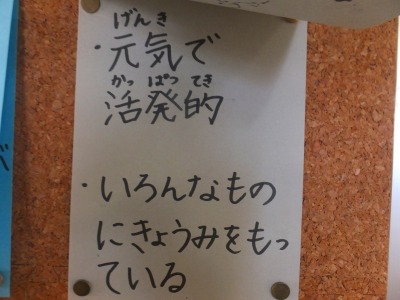 げんき
・元気で
かっ ぱつ てき
活発的
・いろんなもの
にきょうみをもっ
ている